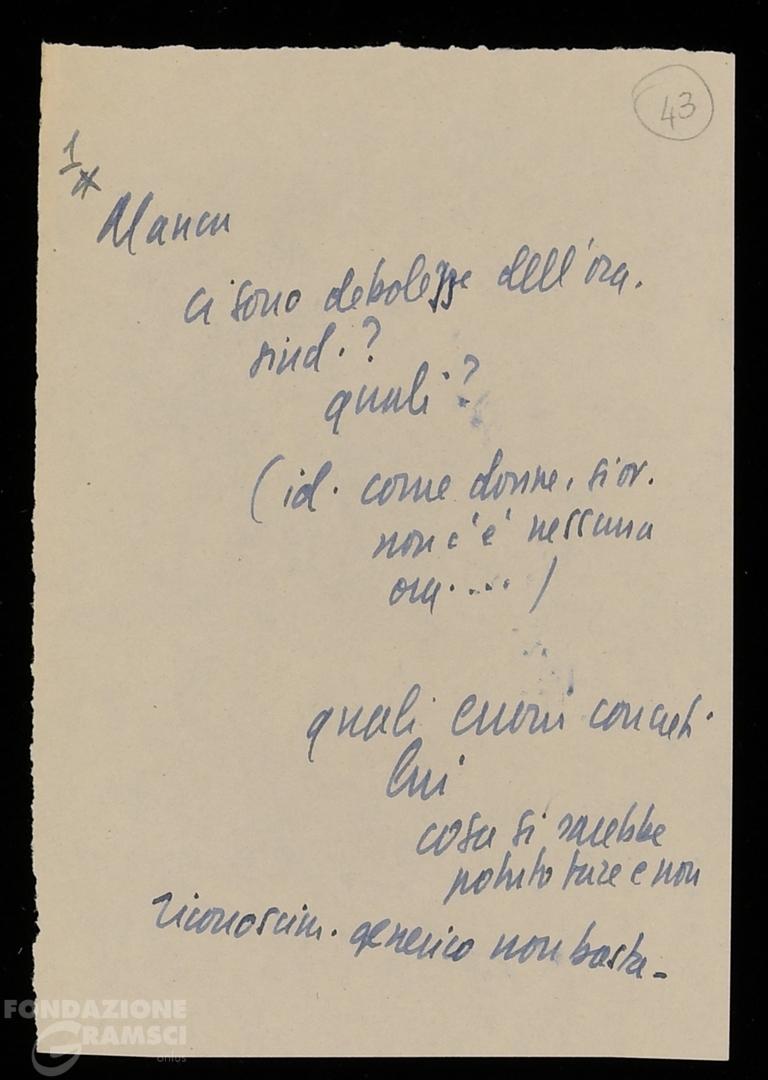 43
1
Manca
ci sono debolezze dell'ora.
sind. ?
quali ?
( id. come donne,
non c'è nessuna
ora .... )
quali errori concreti
lui
cosa si sarebbe
potuto fare e non
riconoscim. generico non basta -
FONDAZIONE
GRAMSCI
onlus